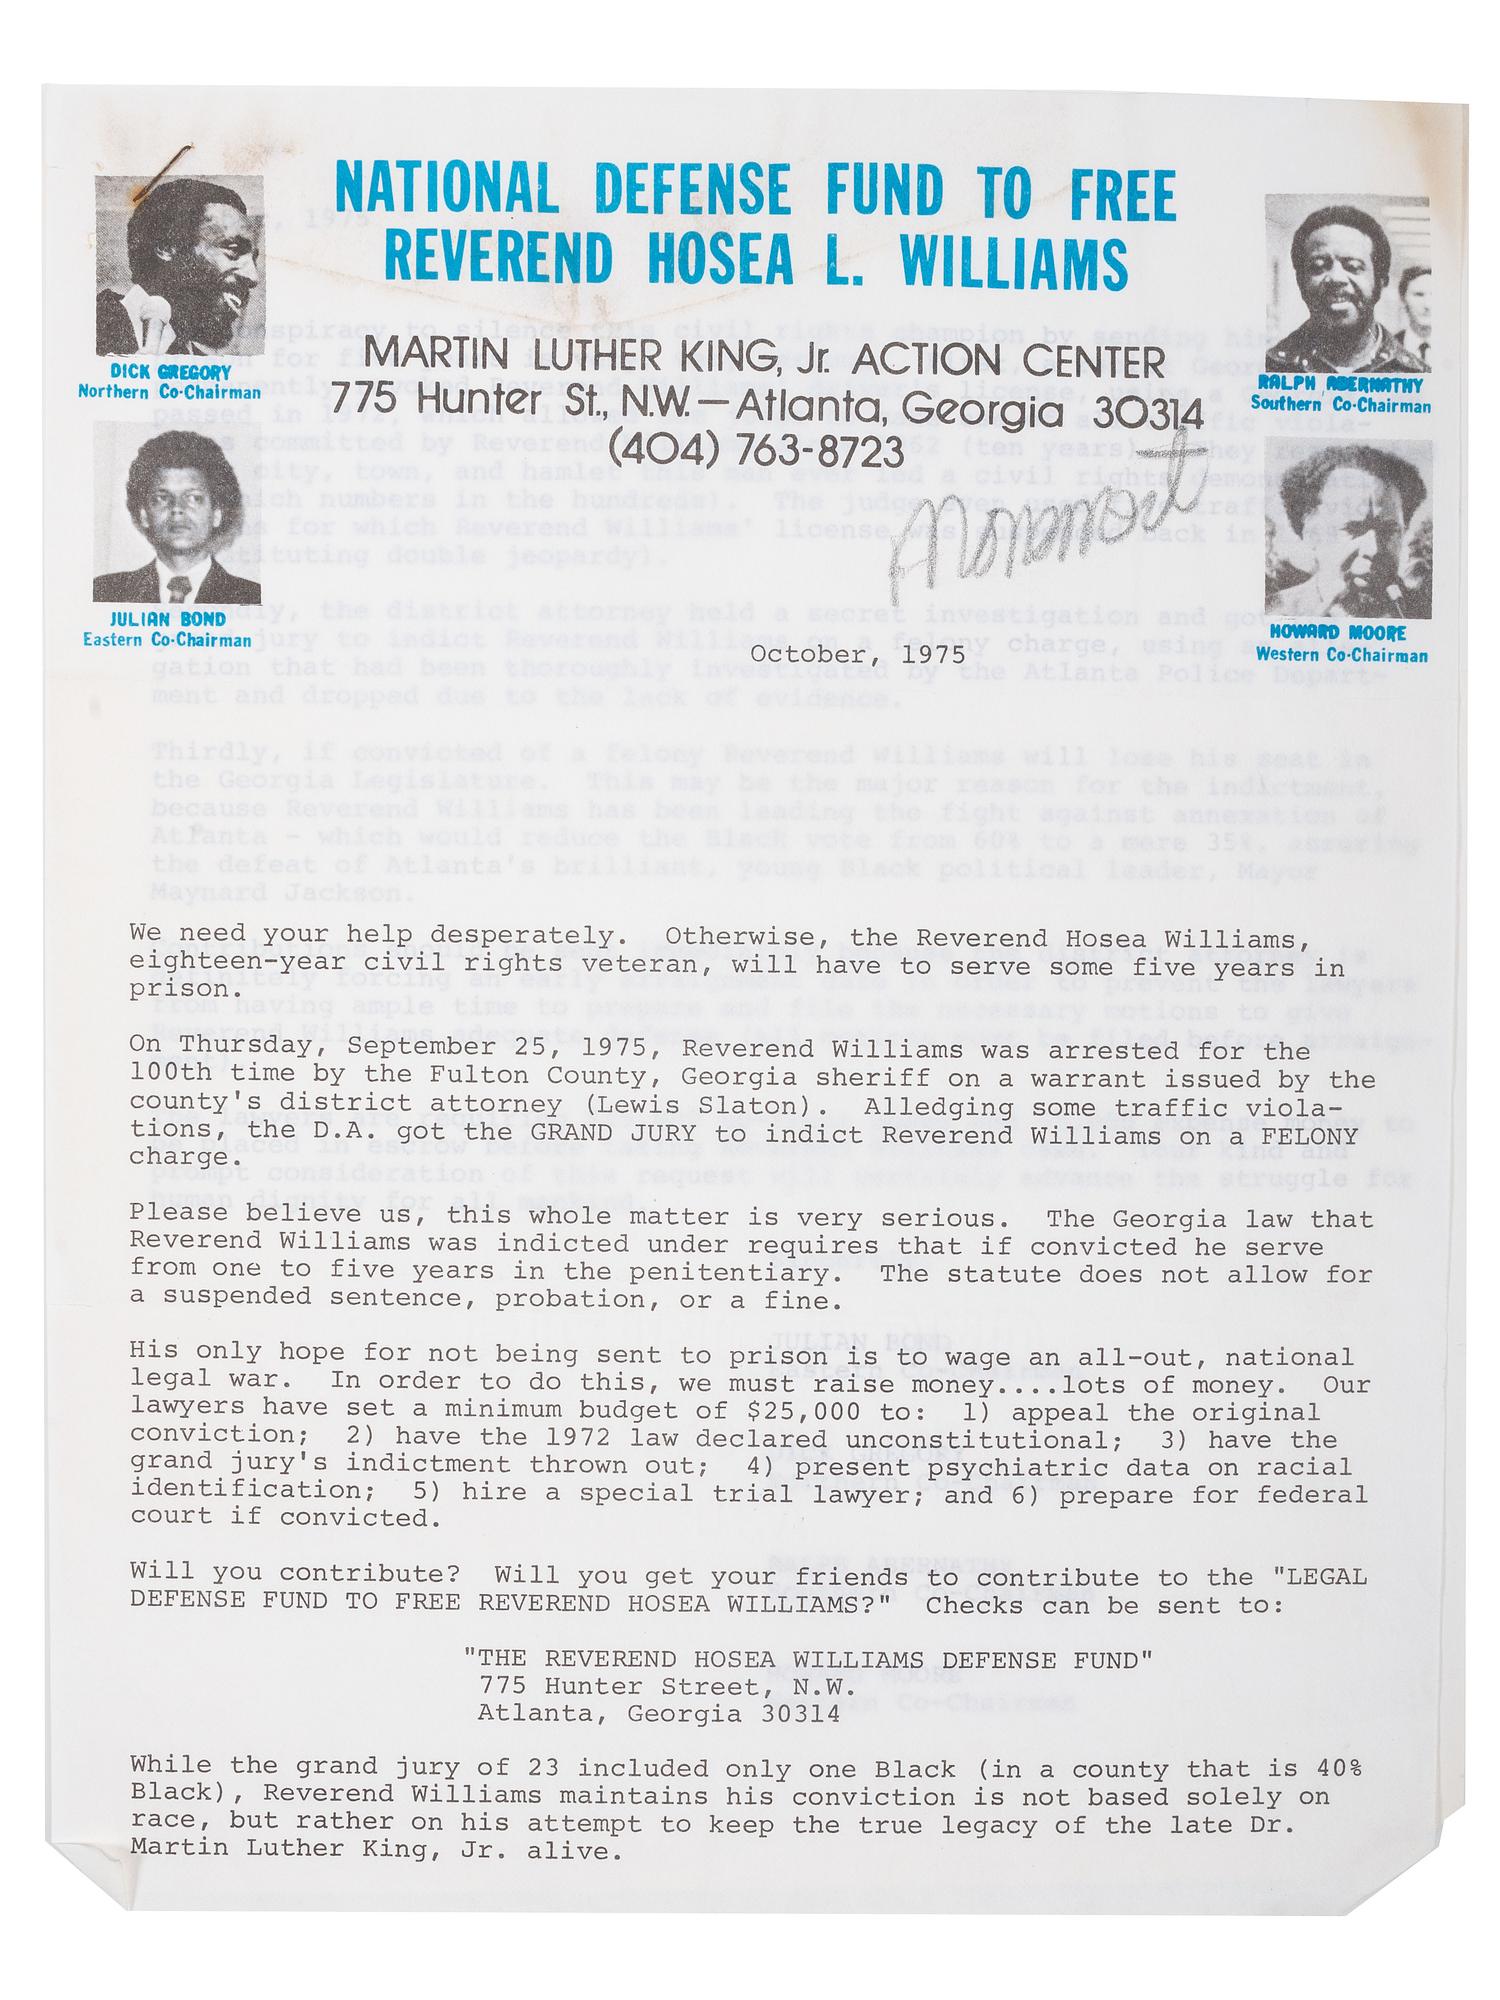 NATIONAL DEFENSE FUND TO FREE
REVEREND HOSEA L. WILLIAMS
MARTIN LUTHER KING, Jr. ACTION CENTER
775 Hunter St., N.W.—Atlanta, Georgia 30314
(404) 763-8723
DICK GREGORY
Northern Co-Chairman
JULIAN BOND
Eastern Co-Chairman
RALPH ABERNATHY
Southern Co-Chairman
HOWARD MOORE
Western Co-Chairman
October, 1975
We need your help desperately. Otherwise, the Reverend Hosea Williams,
eighteen-year civil rights veteran, will have to serve some five years in
prison.
On Thursday, September 25, 1975, Reverend Williams was arrested for the
100th time by the Fulton County, Georgia sheriff on a warrant issued by the
county's district attorney (Lewis Slaton). Alledging some traffic viola-
tions, the D.A. got the GRAND JURY to indict Reverend Williams on a FELONY
charge.
Please believe us, this whole matter is very serious. The Georgia law that
Reverend Williams was indicted under requires that if convicted he serve
from one to five years in the penitentiary. The statute does not allow for
a suspended sentence, probation, or a fine.
His only hope for not being sent to prison is to wage an all-out, national
legal war. In order to do this, we must raise money....lots of money. Our
lawyers have set a minimum budget of $25,000 to: 1) appeal the original
conviction; 2) have the 1972 law declared unconstitutional; 3) have the
grand jury's indictment thrown out; 4) present psychiatric data on racial
identification; 5) hire a special trial lawyer; and 6) prepare for federal
court if convicted.
Will you contribute? Will you get your friends to contribute to the "LEGAL
DEFENSE FUND TO FREE REVEREND HOSEA WILLIAMS?" Checks can be sent to:
"THE REVEREND HOSEA WILLIAMS DEFENSE FUND"
775 Hunter Street, N.W.
Atlanta, Georgia 30314
While the grand jury of 23 included only one Black (in a county that is 40%
Black), Reverend Williams maintains his conviction is not based solely on
race, but rather on his attempt to keep the true legacy of the late Dr.
Martin Luther King, Jr. alive.